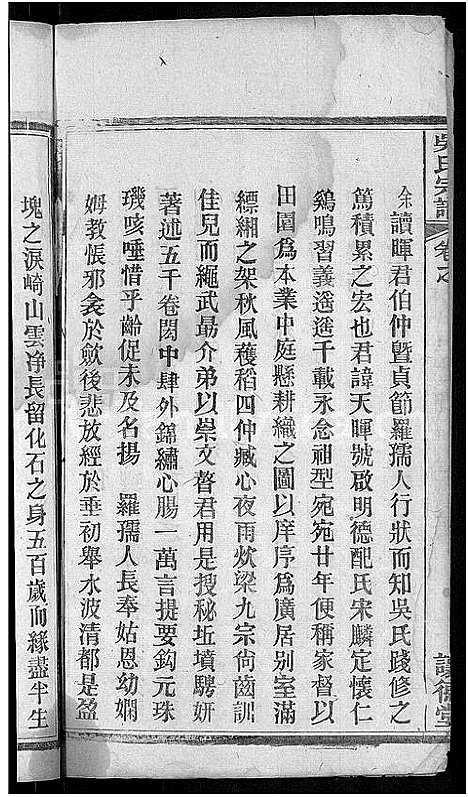 吳氏宗譜
卷之
余讀暉君伯仲暨貞節羅孺人行狀而知吳氏踐修之
篤積累之宏也君諱天暉號啟明德配氏宋麟定懷仁
鷄鳴習義遥遥千載永念祖型宛宛廿年便稱家督以
田園爲本業中庭懸耕織之圖以庠序爲廣居别室滿
縹緗之架秋風穫稻四仲臧心夜雨炊梁九宗尙齒訓
佳兒而繩武勗介弟以崇文聲君用是搜秘坵墳騁妍
著述五千卷閎中肆外錦繡心腸一萬言提要鈎元珠
璣咳唾惜乎齡促未及名揚 羅孺人長奉姑恩幼嫻
姆教悵邪衾於歛後悲放經於垂初舉水波清都是盈
塊之淚崎山雲净長留化石之身五百歲而緣盡半生